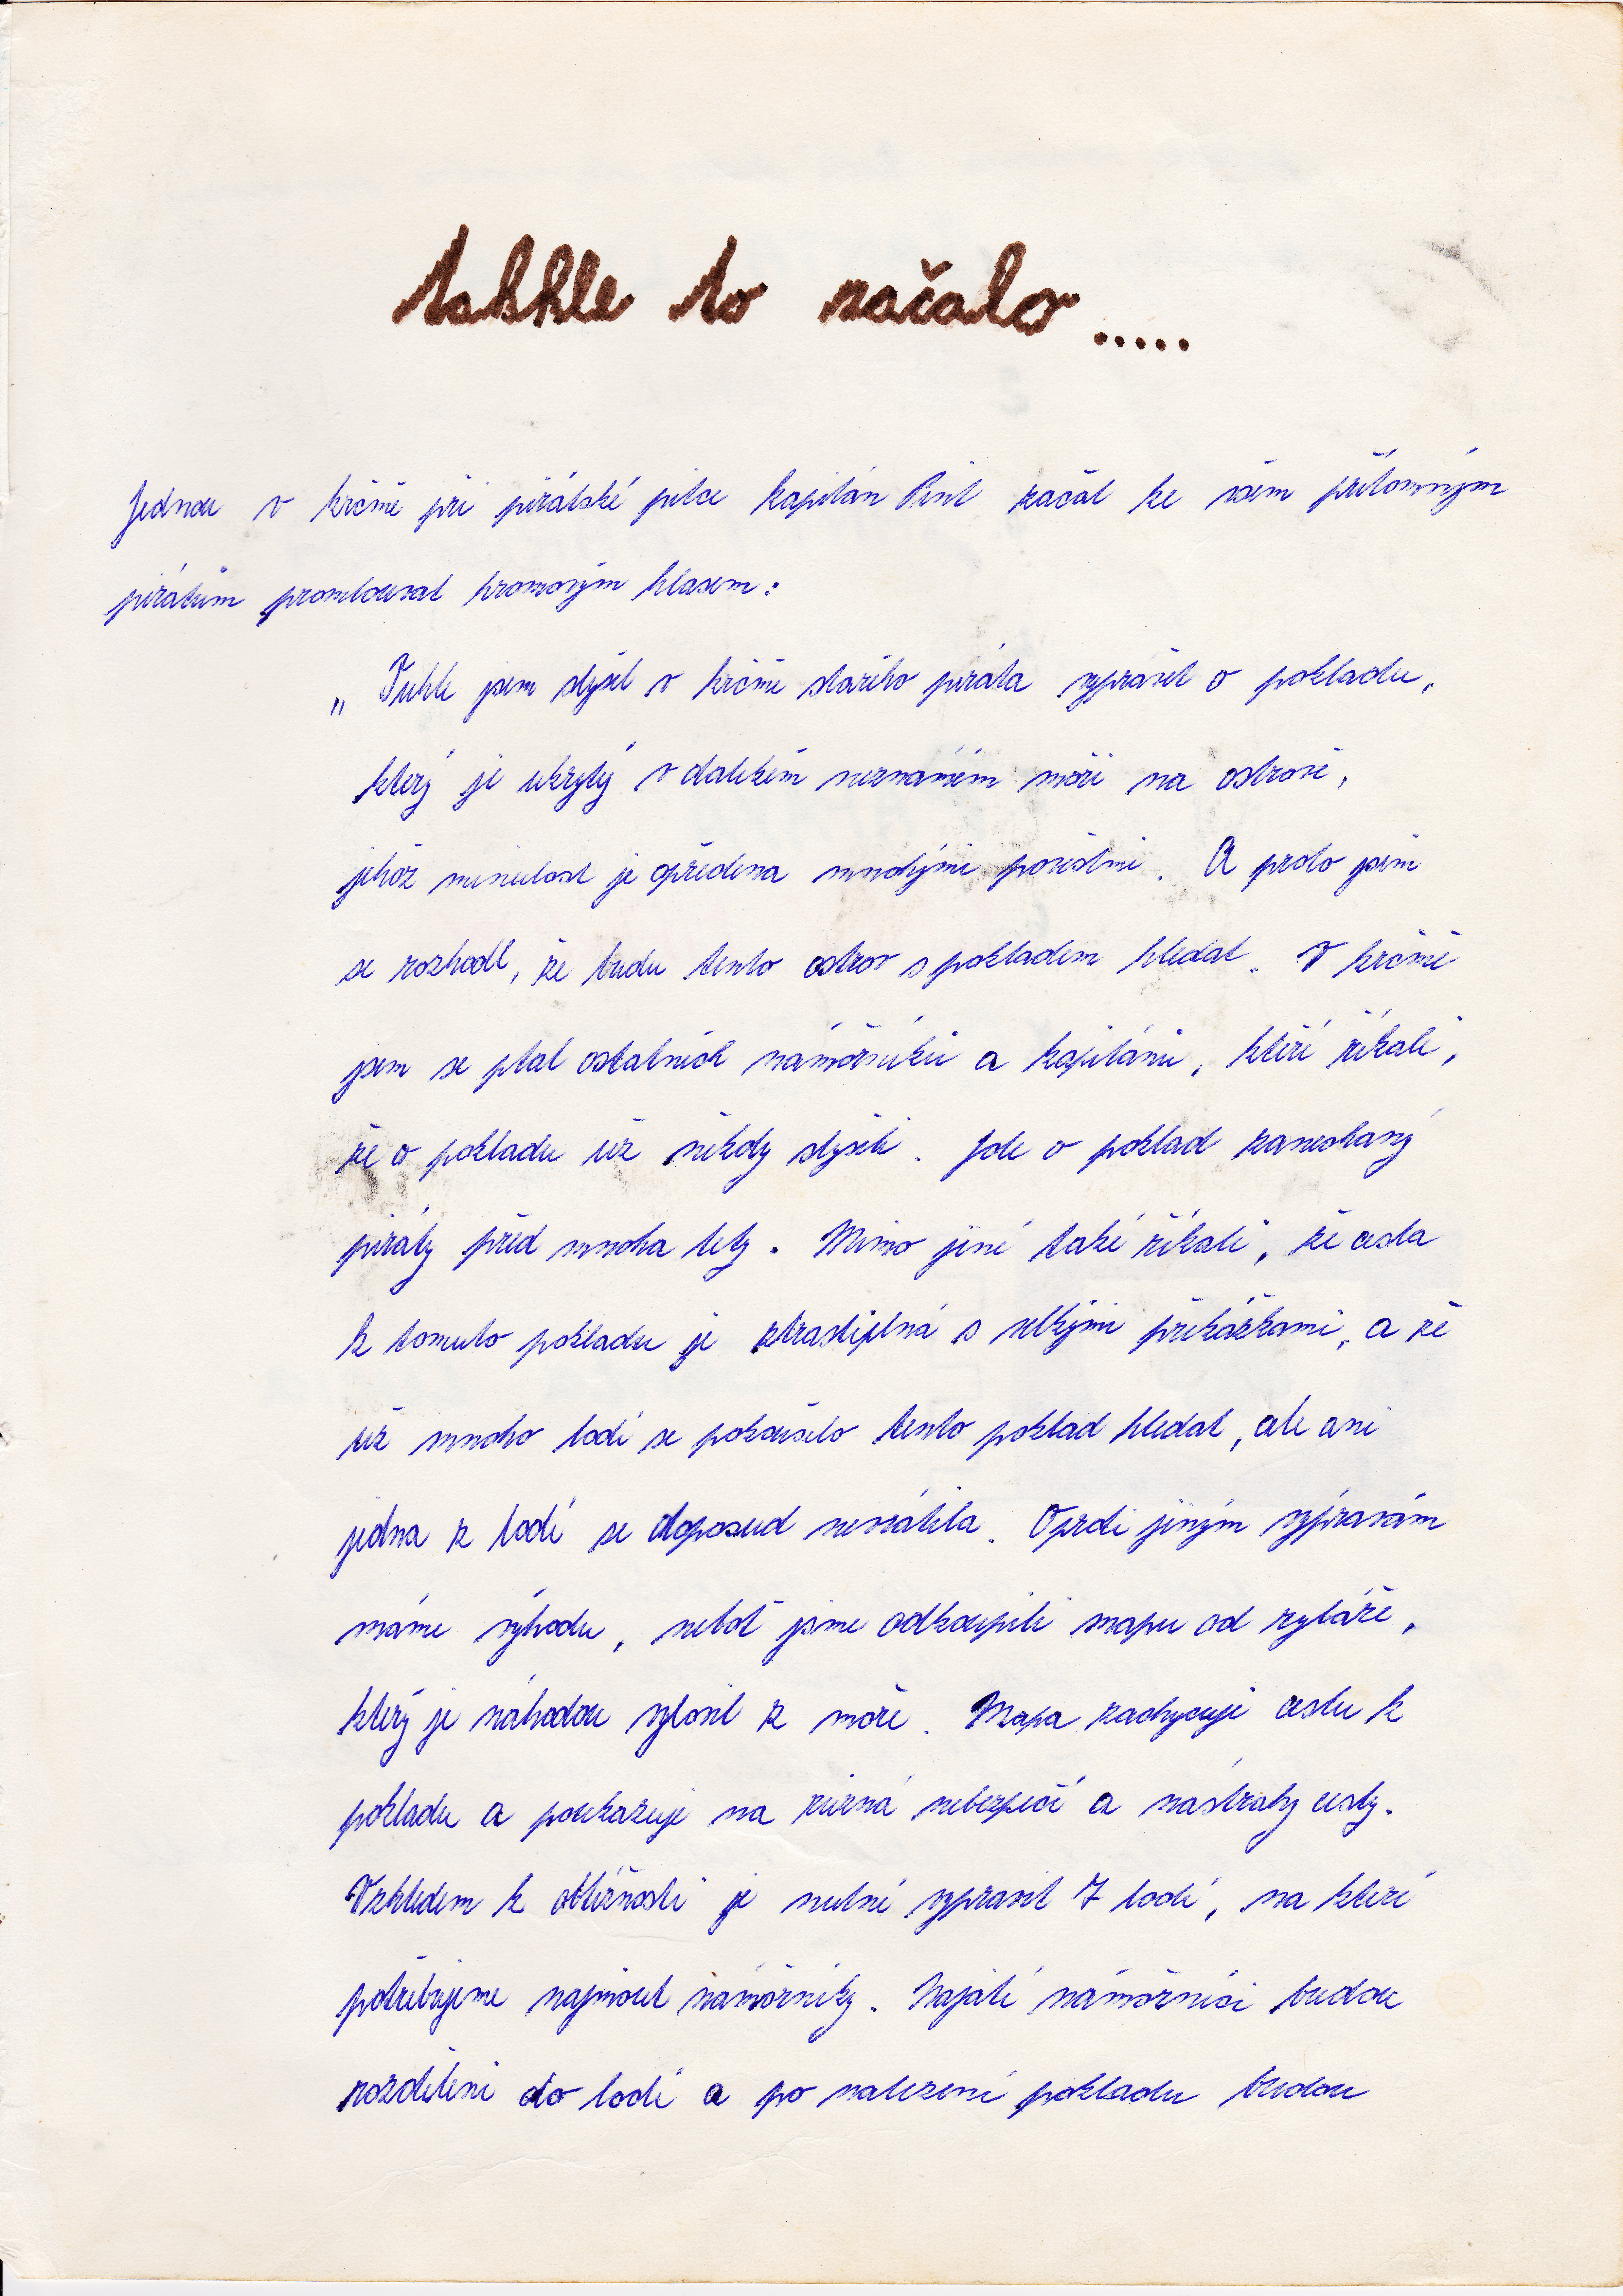 takhle to začalo .....
Jednou v krčmě při pirátské pitce kapitán Pint začal ke všem přítomným
pirátům promlouvat hromovým hlasem:
„ Tuhle jsem slyšel v krčmě starého piráta vyprávět o pokladu,
který je ukrytý v dalekém neznámém moři na ostrově,
jehož minulost je opředena mnohými pověstmi. A proto jsem
se rozhodl, že budu tento ostrov s pokladem hledat. V krčmě
jsem se ptal ostatních námořníků a kapitánů, kteří říkali,
že o pokladu už někdy slyšeli. Jde o poklad zanechaný
piráty před mnoha lety. Mimo jiné také říkali, že cesta
k tomuto pokladu je strastiplná s velkými překážkami, a že
už mnoho lodí se pokoušelo tento poklad hledat, ale ani
jedna z lodí se doposud nevrátila. Oproti jiným výpravám
máme výhodu, neboť jsme odkoupili mapu od rybáře,
který je náhodou vylovil z moře. Mapa zachycuje cestu k
pokladu a poukazuje na různá nebezpečí a nástrahy cesty.
Vzhledem k obtížnosti je nutné vypravit 7 lodí, na které
potřebujeme najmout námořníky. Najatí námořníci budou
rozděleni do lodí a po nalezení pokladu budou